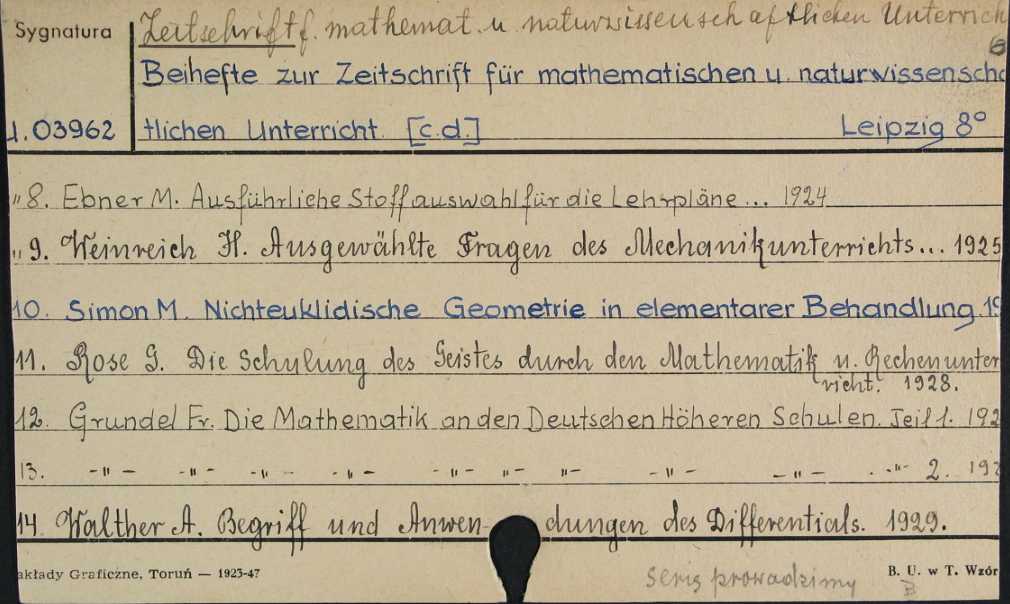 Sygnatura
Zeitschrift f. mathemat. u. naturwissenschaftlichen Unterrich
Beihefte zur Zeitschrift für mathematischen u. naturwissenscha
1.03962 tlichen Unterricht [c.d.] Leipzig 8°
" 8. Ebner M. Ausführliche Stoffauswahl für die Lehrpläne ... 1924
" 9. Weinreich H. Ausgewählte Fragen des Mechanikunterrichts... 1925
10. Simon M. Nichteuklidische Geometrie in elementarer Behandlung. 19
11. Rose G. Die Schulung des Geistes durch den Mathematik u. Rechenunter
richt. 1928.
12. Grundel Fr. Die Mathematik an den Deutschen Höheren Schulen. Teil 1. 192
13. -"- -"- -"- -"- -"- -"- "- -"- -"- -"- 2. 192
14. Walther A. Begriff und Anwen- dungen des Differentials. 1929.
akłady Graficzne, Toruń — 1923-47
seris prowadzimy
B. U. w T. Wzór